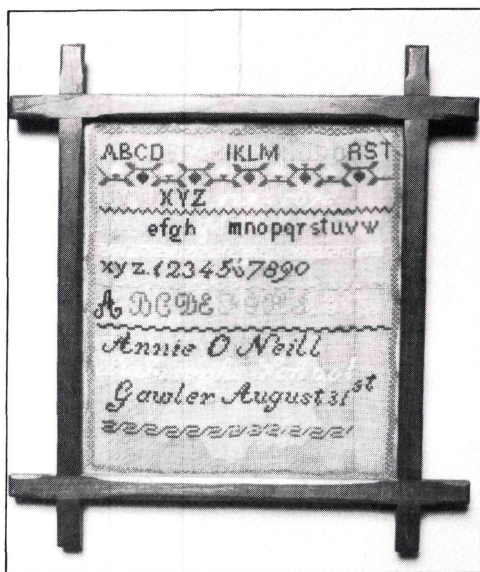 ABCD IKLM RST
XYZ
efgh mnopqrstuvw
xyz. 1234567890
A B C D E
Annie O Neill
Gawler August 31st